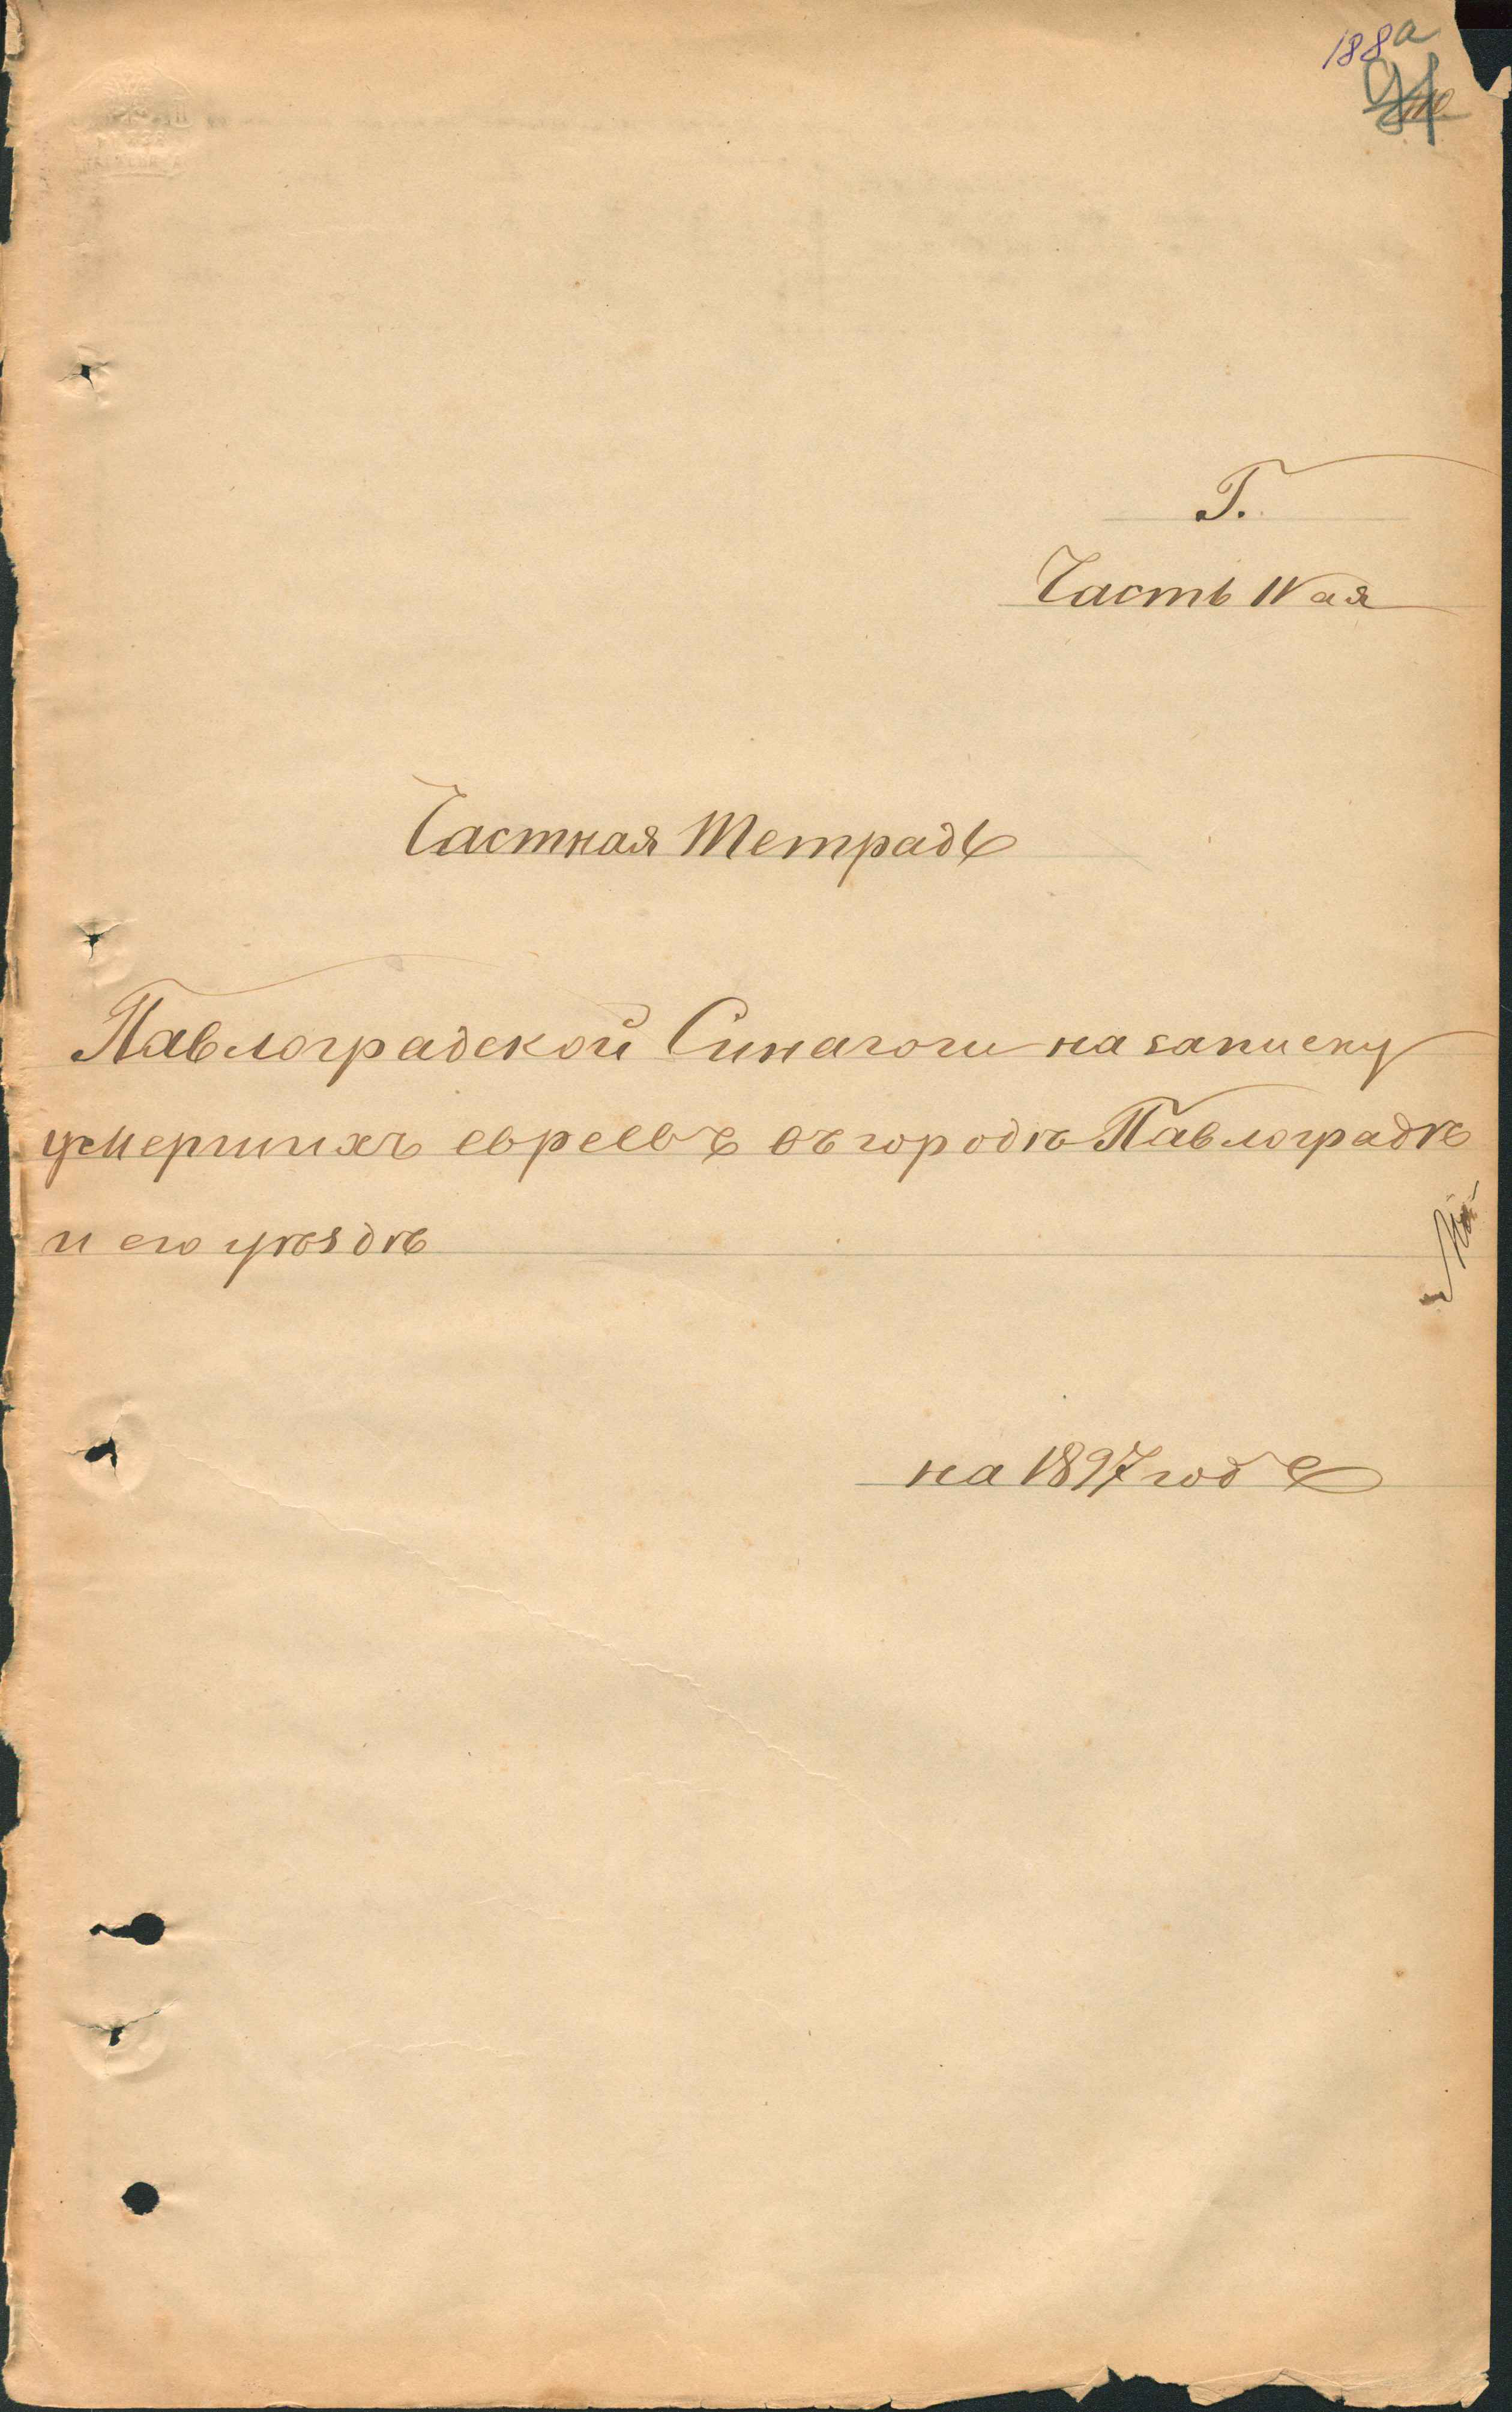 188а
Г.
Часть IVая
Частная Тетрадь
Павлоградской Синагоги на записку
умершихъ евреевъ въ городѣ Павлоградѣ
и его уѣздѣ
на 1897 годъ